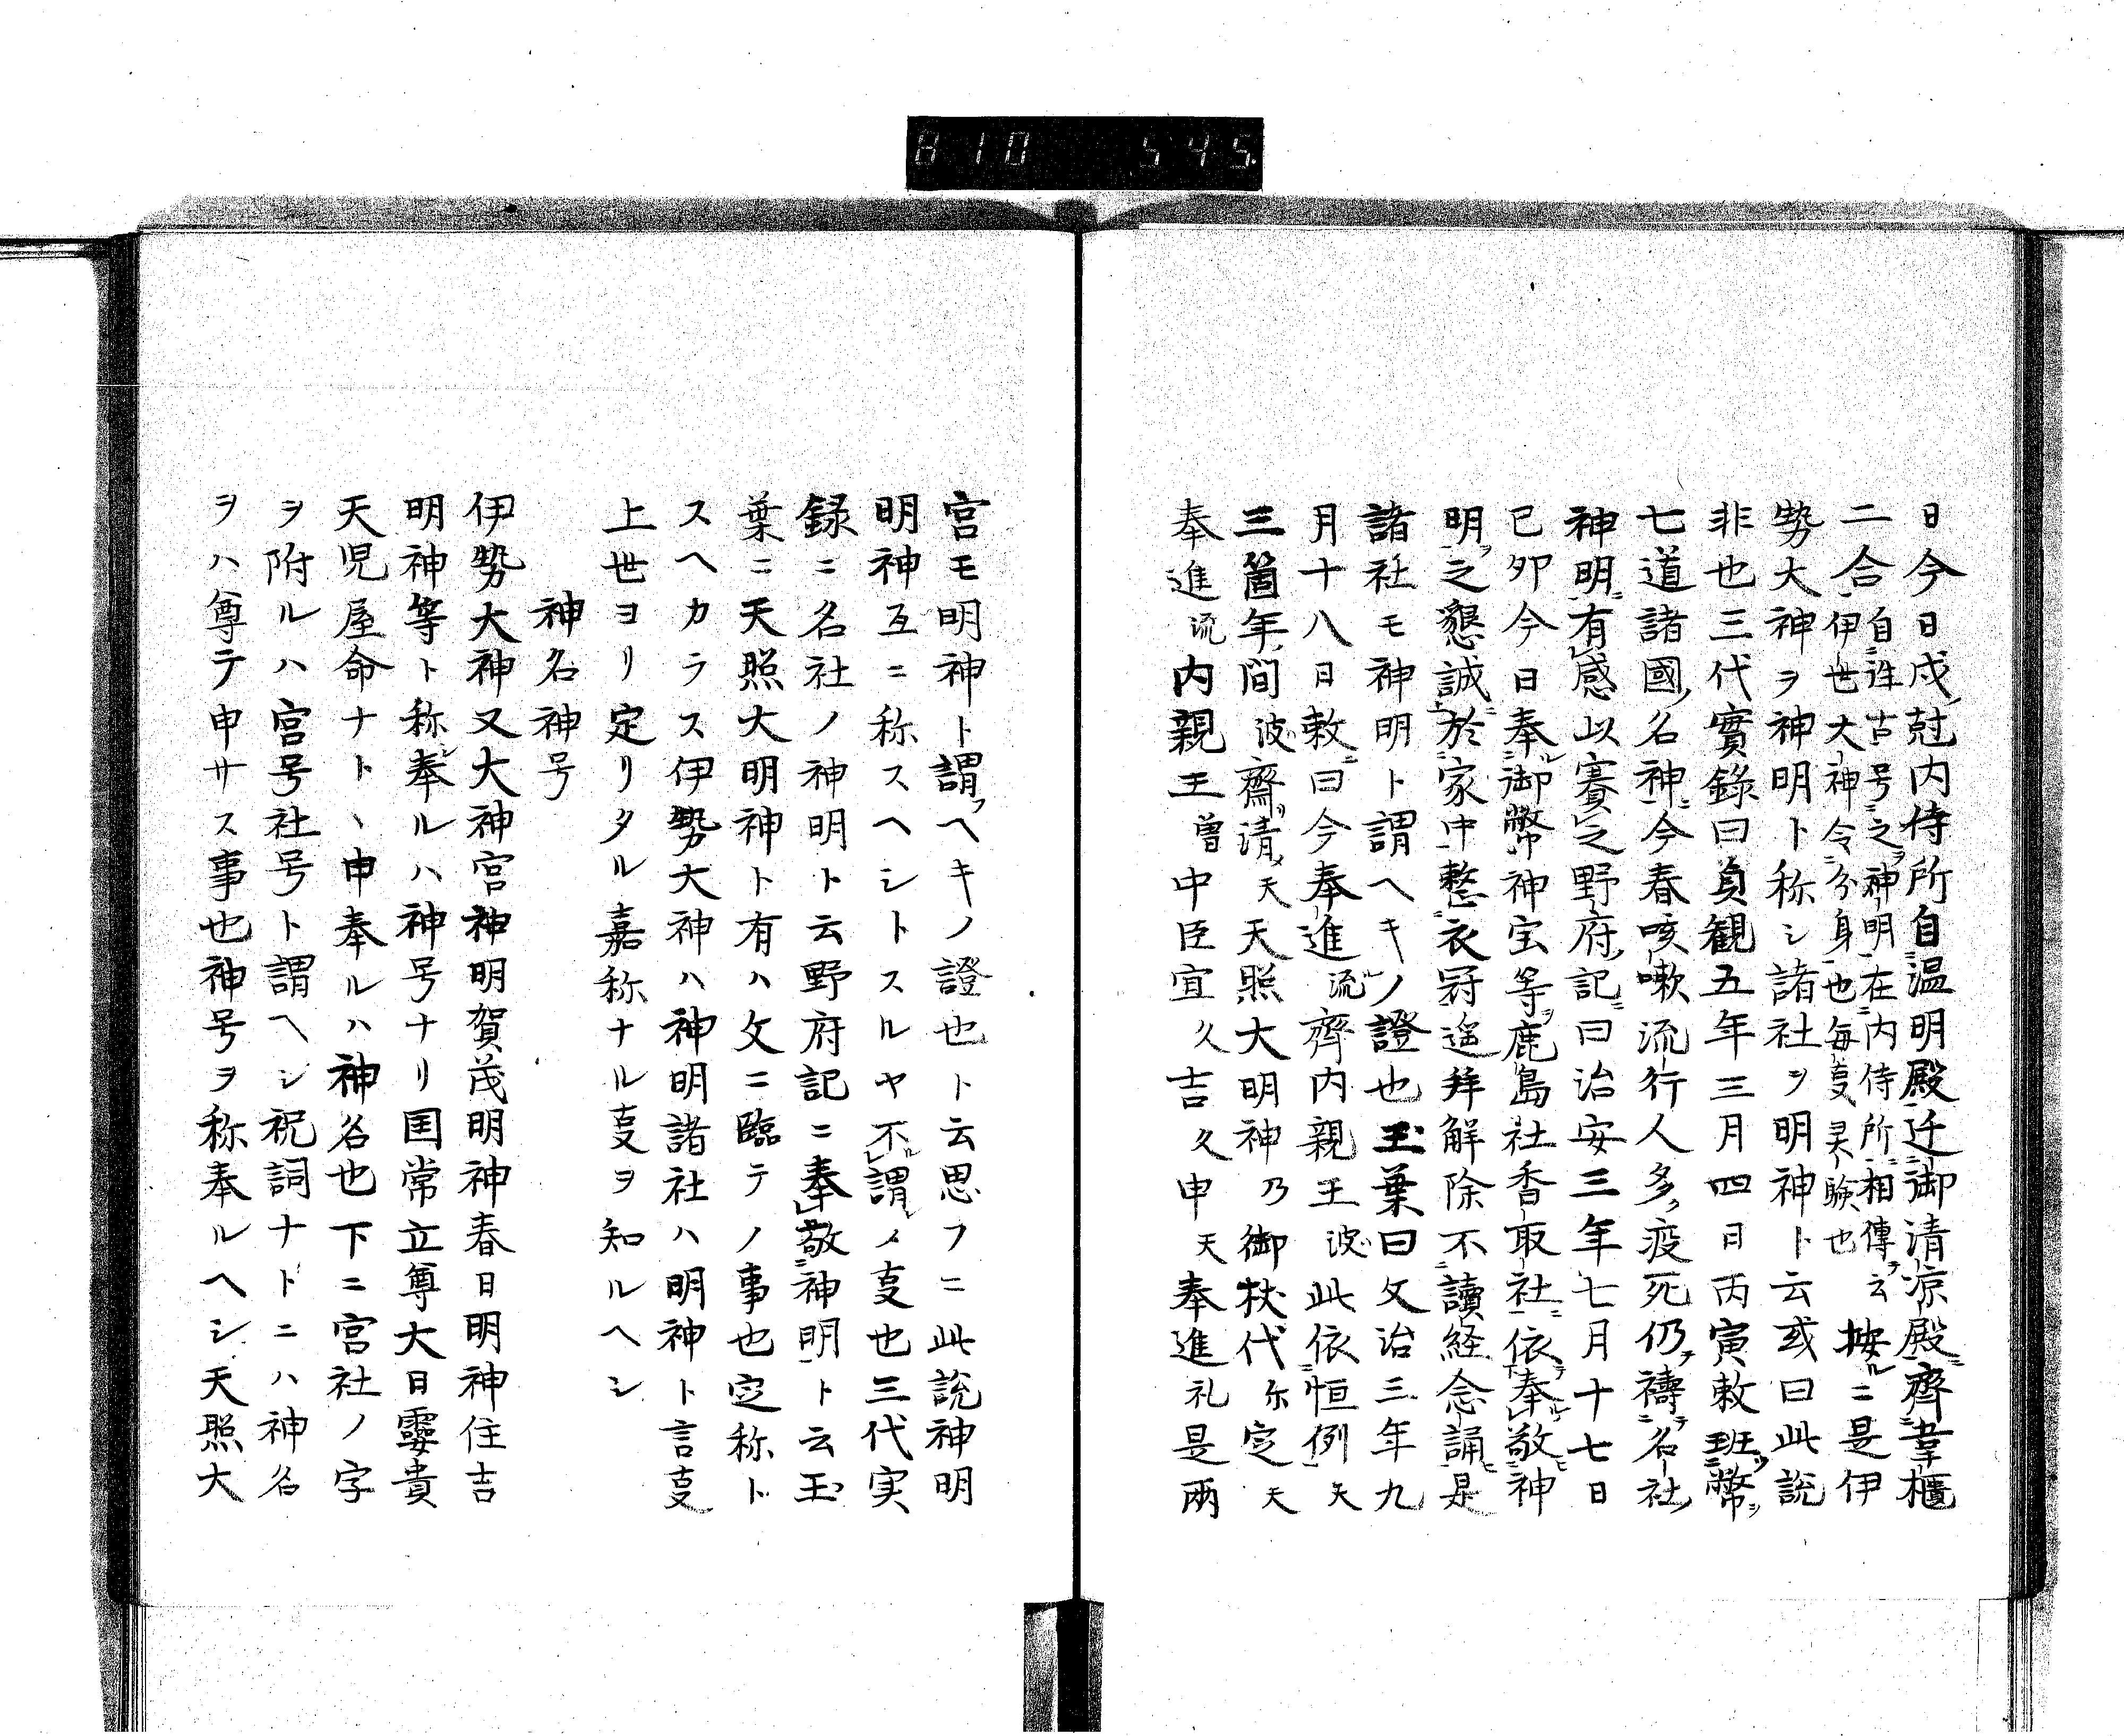 810 545.
日今日戌尅内侍所自温明殿迁御清凉殿齊韋櫃
二合自注古号之神明在内侍所相傳云伊世大神令分身也毎叓灵験也按ルニ是伊
勢大神ヲ神明ト称シ諸社ヲ明神ト云或曰此説
非也三代實錄曰貞観五年三月四日丙寅敕班幣
七道諸國名神今春咳嗽流行人多疫死仍禱名社
神明有感以賽之野府記曰治安三年七月十七日
已夘今日奉御幣神宝等鹿島社香取社依奉敬神
明之懇誠於家中整衣冠遥拜解除不讀経念誦是
諸社モ神明ト謂ヘキノ證也玉葉曰文治三年九
月十八日敕曰今奉進流齊内親王波此依恒例天
三箇年間波齋清天天照大明神乃御杖代尓定天
奉進流内親王曽中臣宜久吉久申天奉進礼是兩
宮モ明神ト謂ヘキノ證也ト云思フニ此説神明
明神互ニ称スヘシトスルヤ不謂ノ叓也三代実
録ニ名社ノ神明ト云野府記ニ奉敬神明ト云玉
葉ニ天照大明神ト有ハ文ニ臨テノ事也定称ト
スヘカラス伊勢大神ハ神明諸社ハ明神ト言叓
上世ヨリ定リタル嘉称ナル叓ヲ知ルヘシ
神名神号
伊勢大神又大神宮神明賀茂明神春日明神住吉
明神等ト称奉ルハ神号ナリ国常立尊大日孁貴
天児屋命ナト、申奉ルハ神名也下ニ宮社ノ字
ヲ附ルハ宮号社号ト謂ヘシ祝詞ナドニハ神名
ヲハ尊テ申サス事也神号ヲ称奉ルヘシ天照大